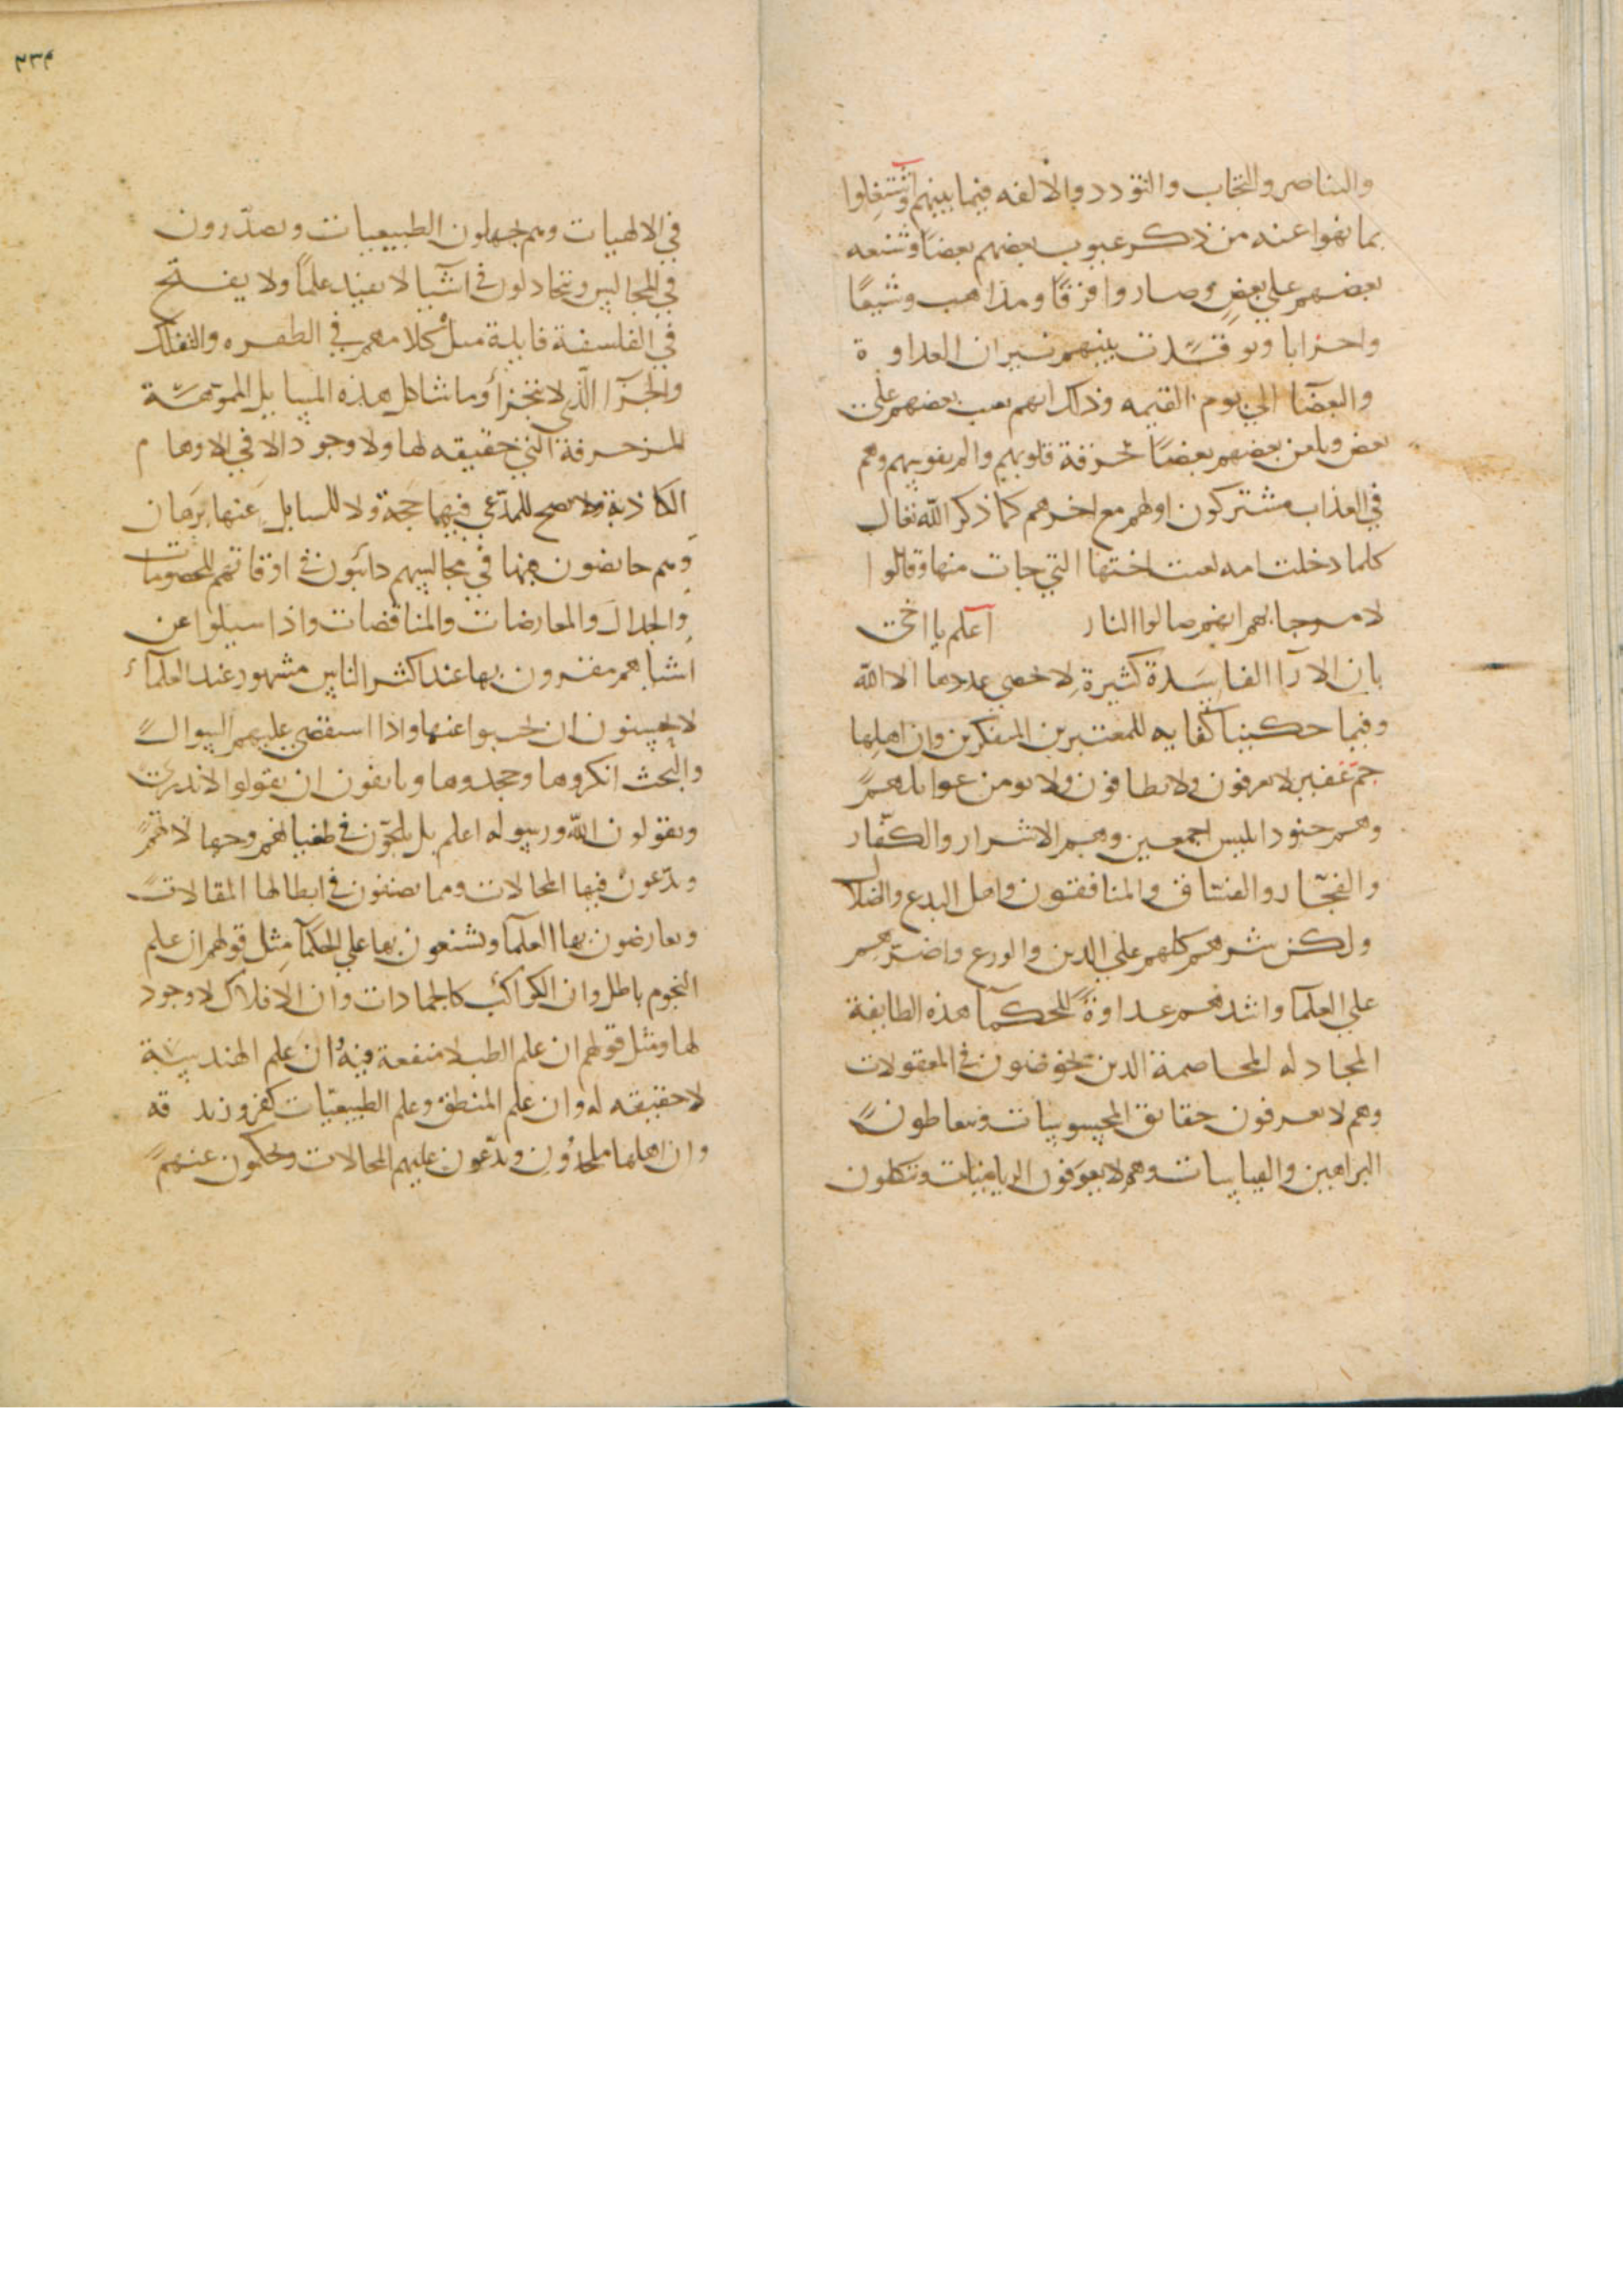 والتناصر والتحاب والتودد والالفه فيما بينهم وٱشتغلوا
بما نهوا عنه من ذكر عيوب بعضهم بعضًا وشنعه
بعضهم على بعض وصاروا فرقًا ومذاهب وشيعًا
واحزابا وتوقدت بينهم نيران العداوة
والبغضآ الي يوم القيمه وذلك انهم يعيب بعضهم علي
بعض ويلعن بعضهم بعضًا محرقة قلوبهم والم نفوسهم وهم
في العذاب مشتركون اولهم مع اخرهم كما ذكر الله تعالى
كلما دخلت امه لعنت اختها التي جات منها وقالوا
لا مرحبا بهم انهم صالوا النار آعلم يا اخى
بان الارآ الفاسدة كثيرة لا يحصي عددها الا الله
وفيما حكينا كفايه للمعتبرين المتفكرين وان اهلها
جم غفير لا يعرفون ولا يطاقون ولا يومن غوايلهم
وهم جنود ابليس اجمعين وهم الاشرار والكفّار
والفجّار والفساق والمنافقون واهل البدع والضلال
ولكن شرهم كلهم علي الدين والورع واضرهم
علي العلمآ واشدهم عداوةً للحكمآ هذه الطايفة
المجادله المخاصمة الذين يخوضون في المعقولات
وهم لا يعرفون حقائق المحسوسات ويتعاطون
البراهين والقياسات وهم لا يعرفون الرياضيات ويتكلمون
في الالهيات وهم يجهلون الطبيعيات ويصدّرون
في المجالس ويتجادلون في اشيآ لا تفيد علمًا ولا يفتح
في الفلسفة فايدة مثل كلامهم في الطفره والتفلك
والجزء الّذي لا يتجزأ وما شاكل هذه المسايل المموّهة
المزخرفة التي حقيقه لها ولا وجود الا في الاوهام
الكاذبة ولا يصح للمدّعي فيها حجة ولا للسايل عنها برهان
وهم خايضون فيها في مجالسهم دائبون في اوقاتهم للخصومات
والجدال والمعارضات والمناقضات واذا سيلوا عن
اشيا هم مقرون بها عند اكثر الناس مشهور عند العلمآء
لا يحسنون ان يجيبوا عنها واذا استقصي عليهم السوال
والبحث انكروها وجحدوها ويانفون ان يقولوا لا ندرى
ويقولون الله ورسوله اعلم بل يلجّون في طغيانهم وجهالاتهم
ويدّعون فيها المحالات ومما يصنفون في ابطالها المقالات
ويعارضون بها العلمآ ويشنعون بها علي الحكمآ مثل قولهم ان علم
النجوم باطل وان الكواكب كالجمادات وان الافلاك لا وجود
لها ومثل قولهم ان علم الطب لا منفعة فيه وان علم الهندسة
لا حقيقه له وان علم المنطق وعلم الطبيعيّات كفر وزندقه
وان اهلها ملحدون ويدّعون عليهم المحالات ويحكون عنهم